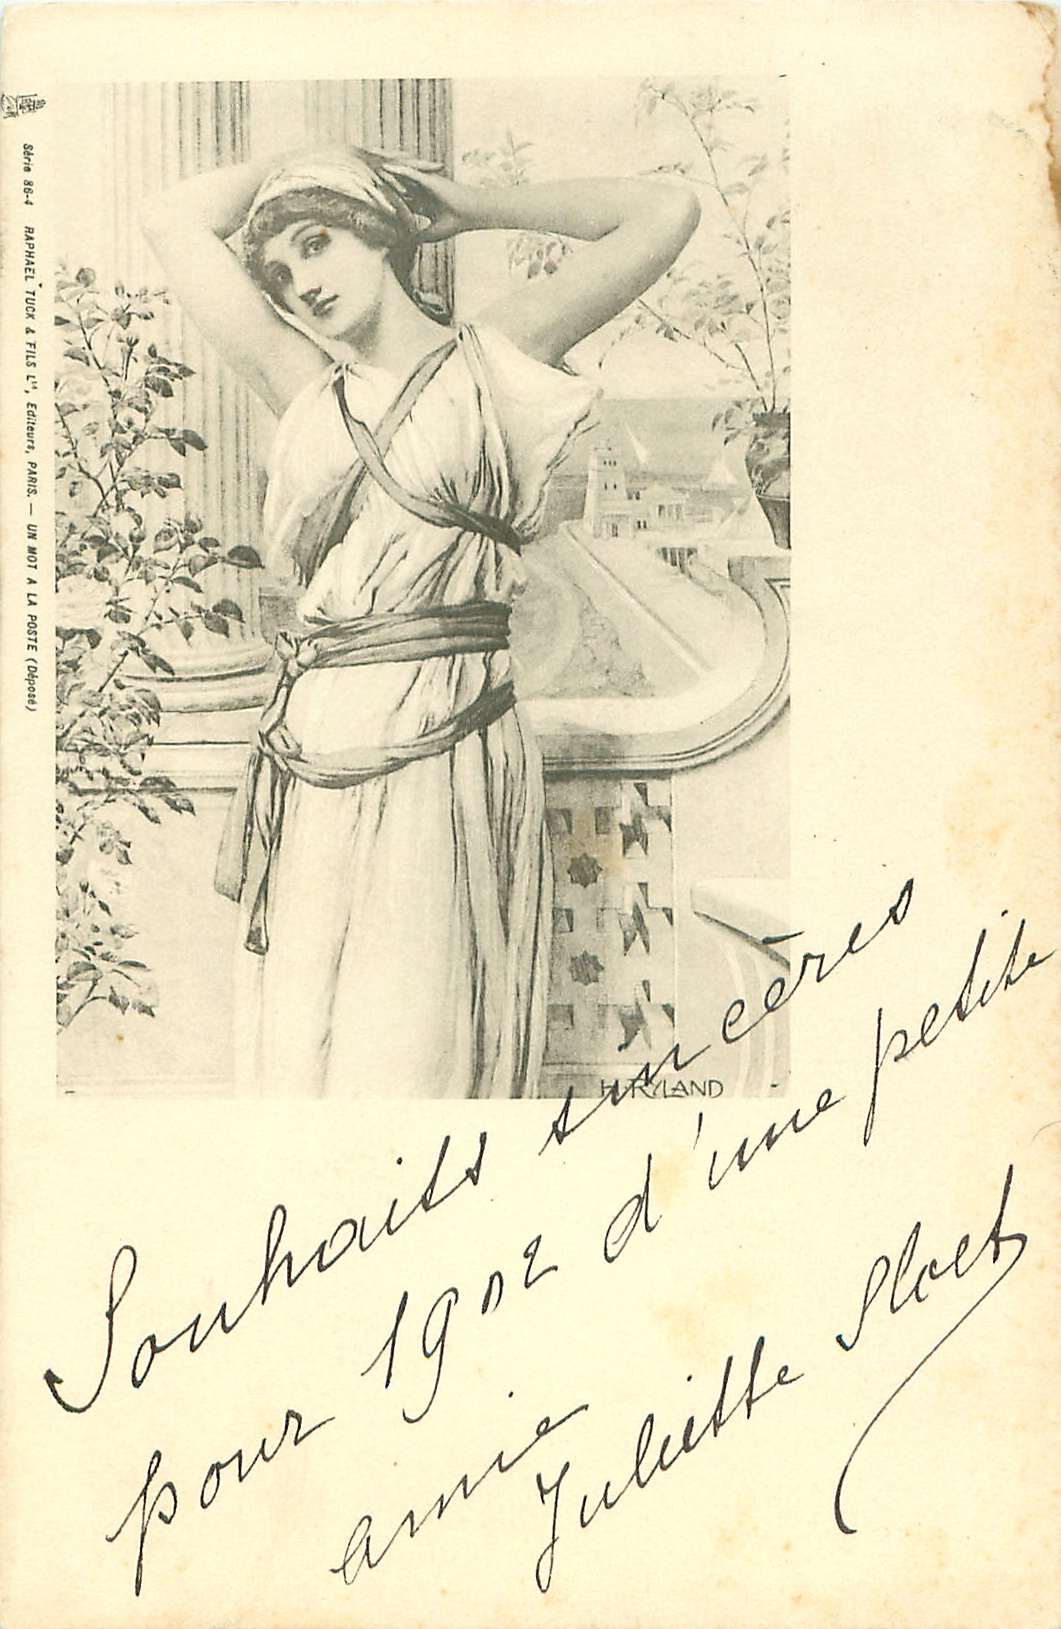 Série 86-4 RAPHAEL TUCK & FILS Lᵈ, Editeurs, PARIS. — UN MOT A LA POSTE (Déposé)
H. RYLAND
Souhaits sincères
pour 1902 d'une petite
amie
Juliette